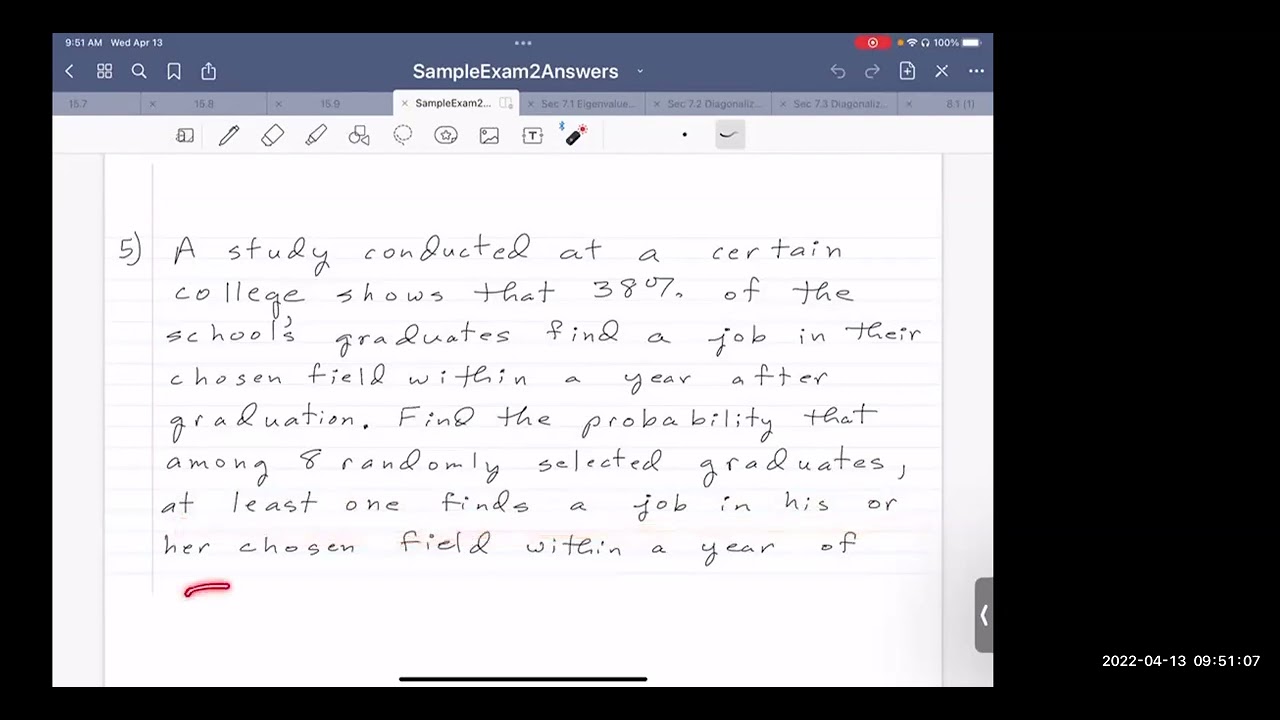 9:51 AM Wed Apr 13
100%
SampleExam2Answers
15.7
15.8
15.9
SampleExam2...
Sec 7.1 Eigenvalue...
Sec 7.2 Diagonaliz...
Sec 7.3 Diagonaliz...
8.1 (1)
5) A study conducted at a certain
college shows that 38% of the
school's graduates find a job in their
chosen field within a year after
graduation. Find the probability that
among 8 randomly selected graduates,
at least one finds a job in his or
her chosen field within a year of
2022-04-13 09:51:07